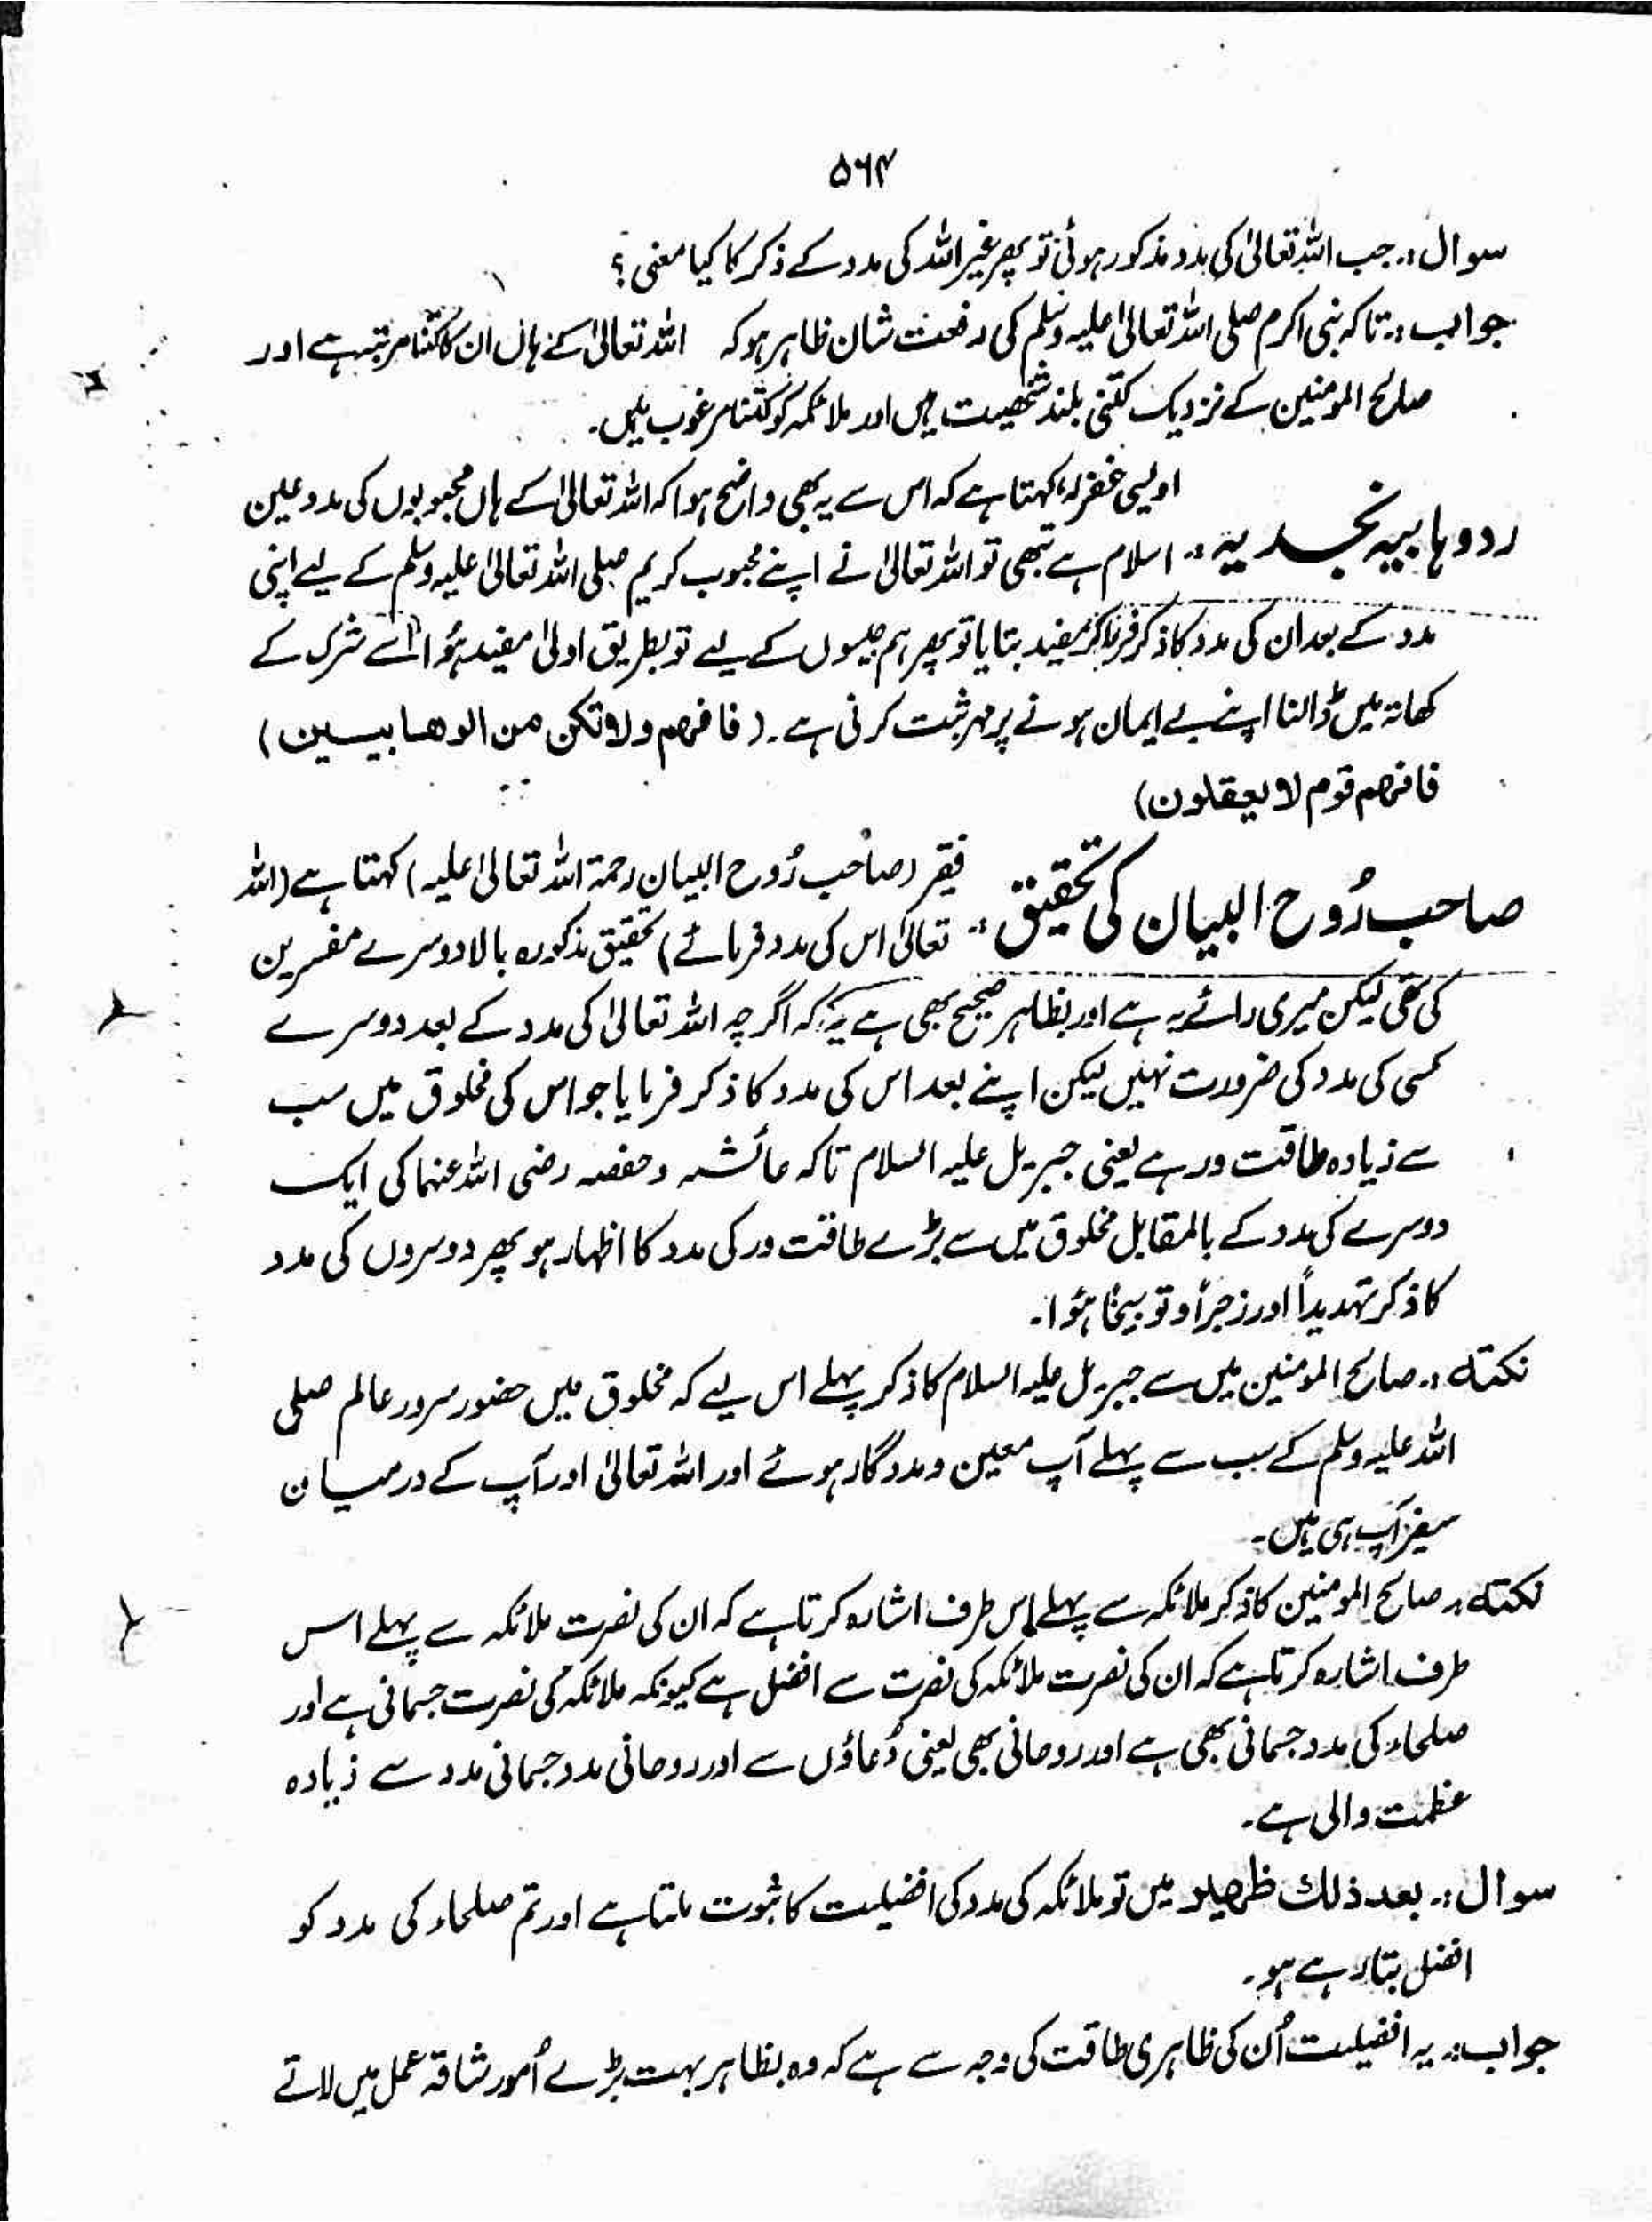 ۵۶۴
سوال :۔ جب اللہ تعالیٰ کی مدد مذکور ہوئی تو پھر غیر اللہ کی مدد کے ذکر کا کیا معنی ؟
جواب :۔ تاکہ نبی اکرم صلی اللہ تعالیٰ علیہ وسلم کی رفعت شان ظاہر ہو کہ اللہ تعالیٰ کے ہاں ان کا کتنا مرتبہ ہے اور
صالح المومنین کے نزدیک کتنی بلند شخصیت ہیں اور ملائکہ کو کتنا مرغوب ہیں۔
ردوہابیہ نجدیہ :۔ اویسی غفرلہٗ کہتا ہے کہ اس سے یہ بھی واضح ہوا کہ اللہ تعالیٰ کے ہاں محبوبوں کی مدد عین
اسلام ہے تبھی تو اللہ تعالیٰ نے اپنے محبوب کریم صلی اللہ تعالیٰ علیہ وسلم کے لیے اپنی
مدد کے بعد ان کی مدد کا ذکر فرما کر مفید بتایا تو پھر ہم جیسوں کے لیے تو بطریق اولیٰ مفید ہُوا اسے شرک کے
کھاتہ میں ڈالنا اپنے بے ایمان ہونے پر مہر ثبت کرنی ہے۔ (فافہم ولا تکن من الوھابیین)
فانہم قوم لا یعقلون)
صاحب رُوح البیان کی تحقیق :۔ فقیر (صاحب رُوح البیان رحمۃ اللہ تعالیٰ علیہ) کہتا ہے (اللہ
تعالیٰ اس کی مدد فرمائے) تحقیق مذکورہ بالا دوسرے مفسرین
کی تھی لیکن میری رائے یہ ہے اور بظاہر صحیح بھی ہے یہ کہ اگرچہ اللہ تعالیٰ کی مدد کے بعد دوسرے
کسی کی مدد کی ضرورت نہیں لیکن اپنے بعد اس کی مدد کا ذکر فرمایا جو اس کی مخلوق میں سب
سے زیادہ طاقت ور ہے یعنی جبریل علیہ السلام تاکہ عائشہ و حفصہ رضی اللہ عنہما کی ایک
دوسرے کی مدد کے بالمقابل مخلوق میں سے بڑے طاقت ور کی مدد کا اظہار ہو پھر دوسروں کی مدد
کا ذکر تہدیداً اور زجراً و توبیخاً ہُوا۔
نکتہ :۔ صالح المومنین میں سے جبریل علیہ السلام کا ذکر پہلے اس لیے کہ مخلوق میں حضور سرور عالم صلی
اللہ علیہ وسلم کے سب سے پہلے آپ معین و مددگار ہوئے اور اللہ تعالیٰ اور آپ کے درمیان
سفیر آپ ہی ہیں۔
نکتہ :۔ صالح المومنین کا ذکر ملائکہ سے پہلے اس طرف اشارہ کرتا ہے کہ ان کی نصرت ملائکہ سے پہلے اس
طرف اشارہ کرتا ہے کہ ان کی نصرت ملائکہ کی نصرت سے افضل ہے کیونکہ ملائکہ کی نصرت جسمانی ہے اور
صلحاء کی مدد جسمانی بھی ہے اور روحانی بھی یعنی دُعاؤں سے اور روحانی مدد جسمانی مدد سے زیادہ
عظمت والی ہے۔
سوال :۔ بعد ذلك ظهير میں تو ملائکہ کی مدد کی افضیلت کا ثبوت ملتا ہے اور تم صلحاء کی مدد کو
افضل بتا رہے ہو۔
جواب :۔ یہ افضیلت اُن کی ظاہری طاقت کی وجہ سے ہے کہ وہ بظاہر بہت بڑے اُمور شاقہ عمل میں لاتے